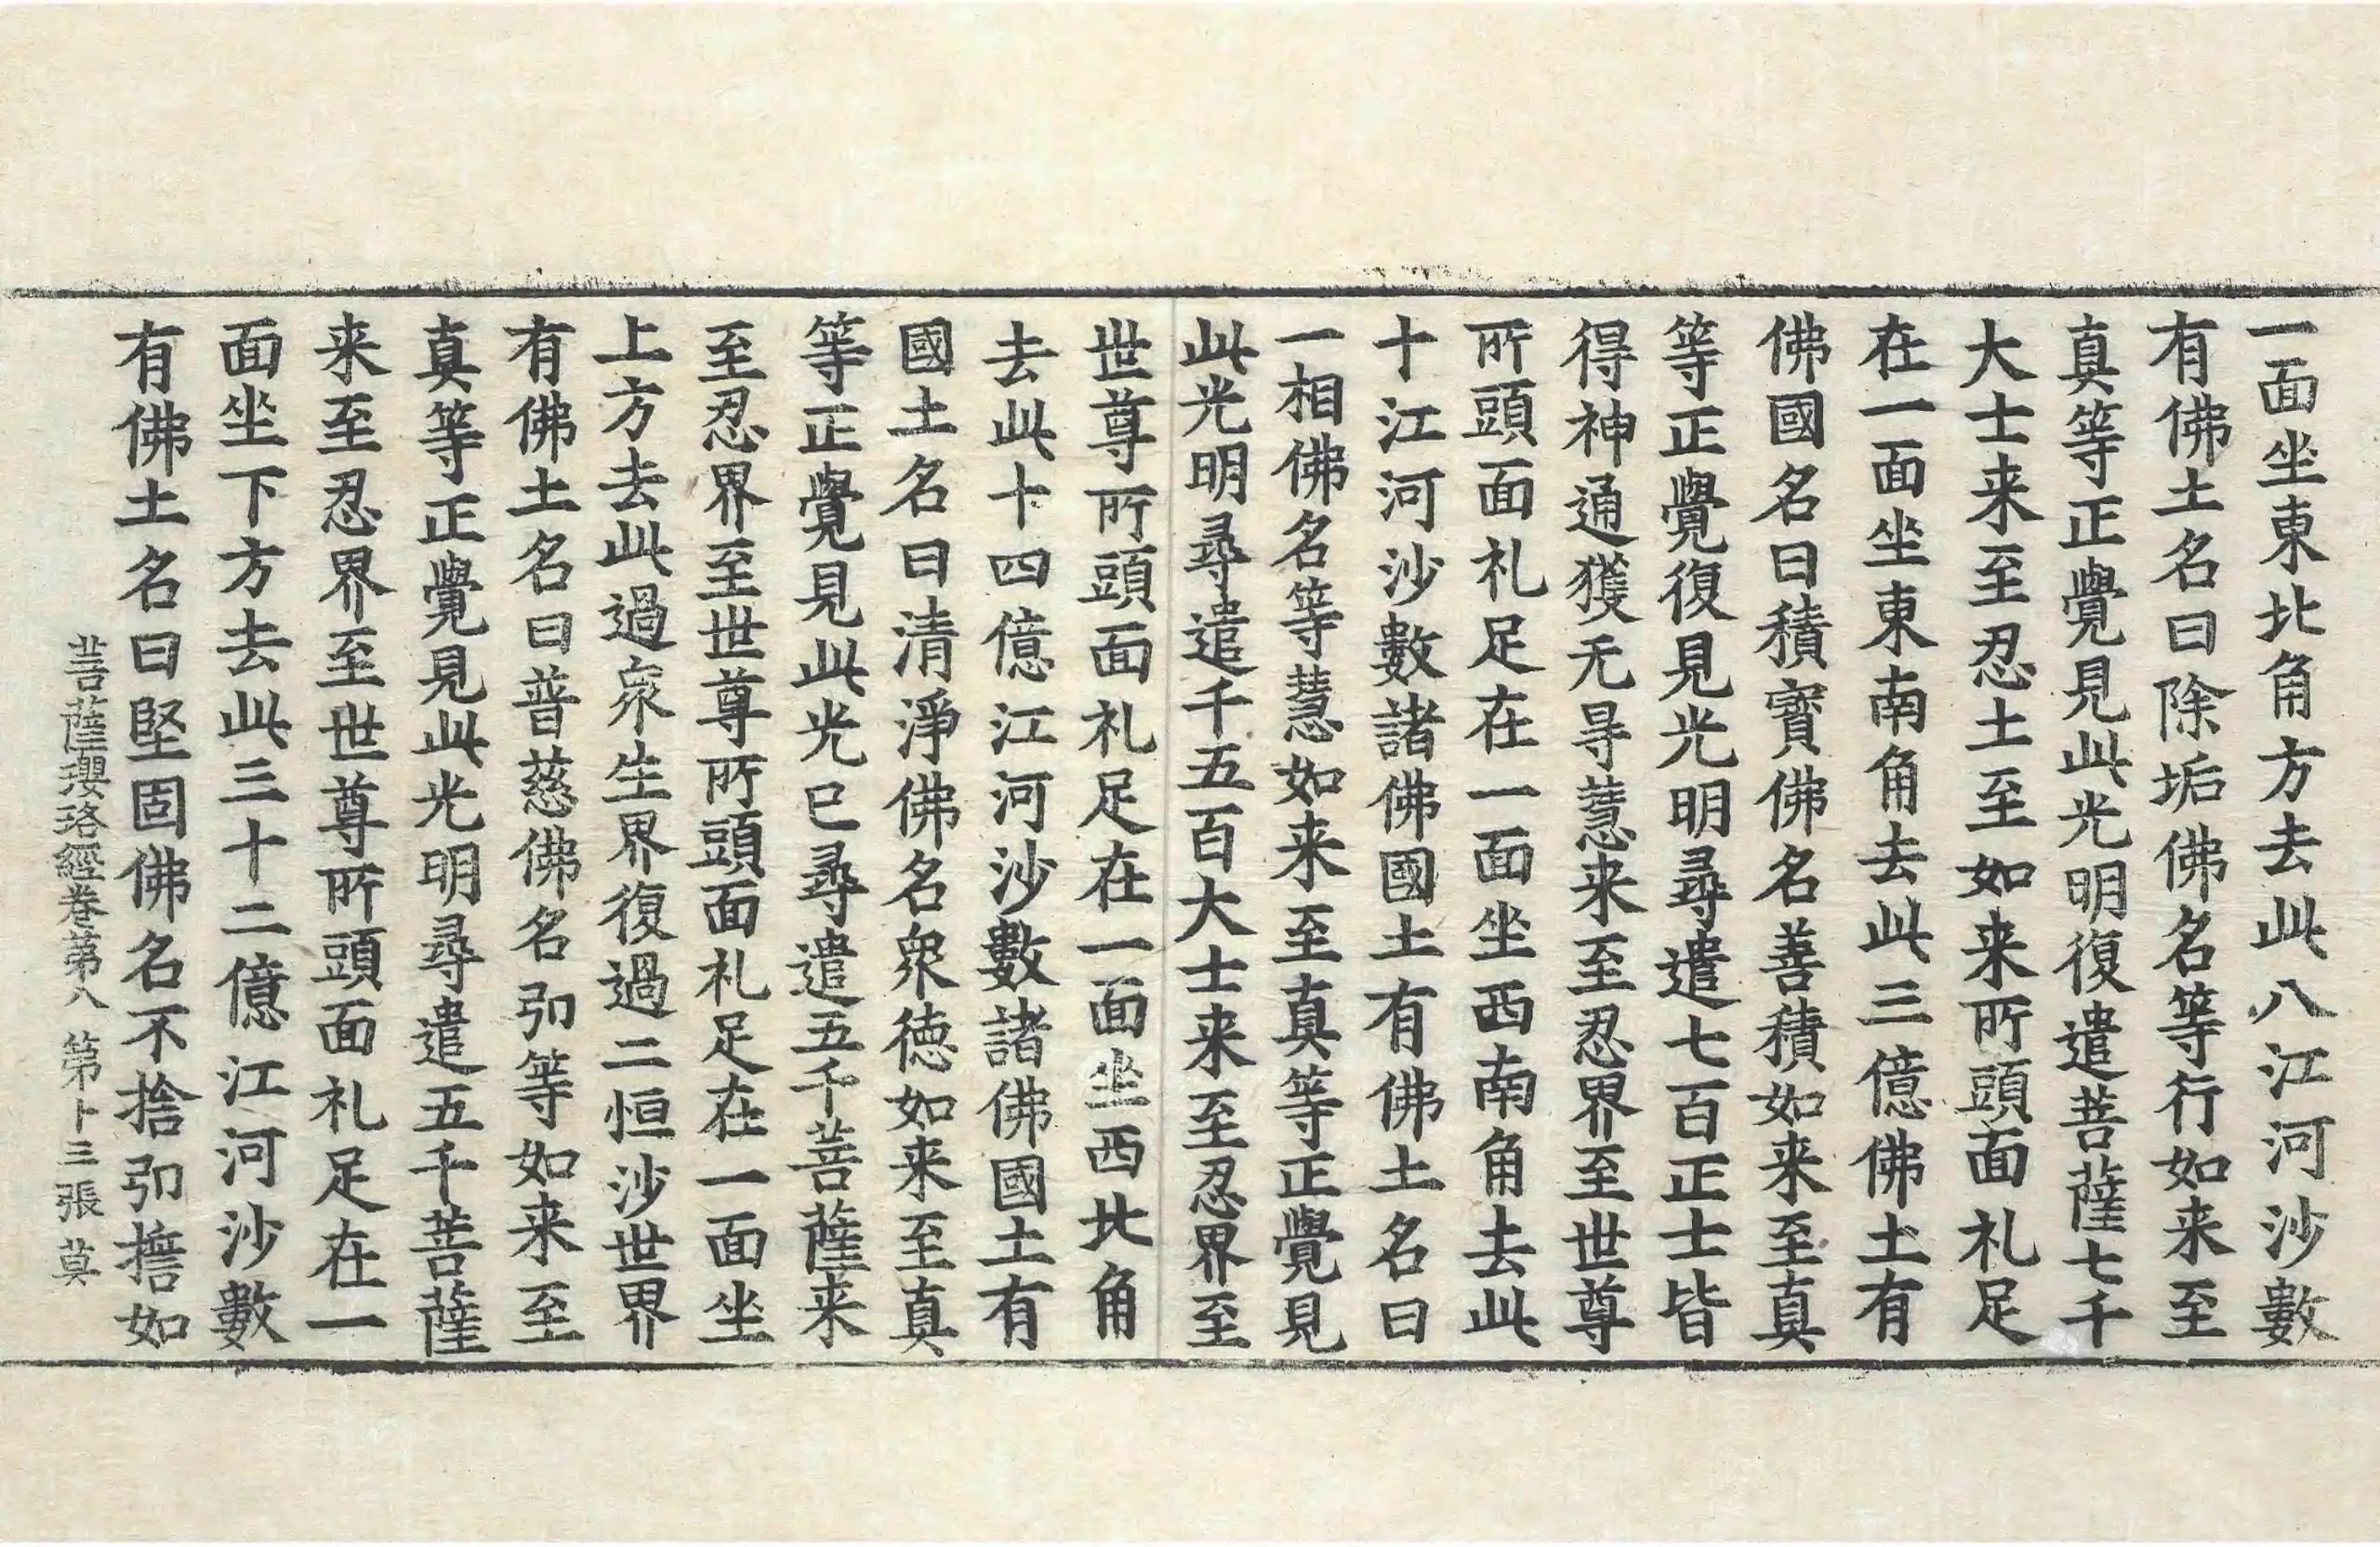 一面坐東北角方去此八江河沙數
有佛土名曰除垢佛名等行如来至
真等正覺見此光明復遣菩薩七千
大士来至忍土至如来所頭面礼足
在一面坐東南角去此三億佛土有
佛國名曰積寳佛名善積如来至真
等正覺復見光明尋遣七百正士皆
得神通獲无㝵慧来至忍界至世尊
所頭面礼足在一面坐西南角去此
十江河沙數諸佛國土有佛土名曰
一相佛名等慧如来至真等正覺見
此光明尋遣千五百大士来至忍界至
世尊所頭面礼足在一面坐西北角
去此十四億江河沙數諸佛國土有
國土名曰清淨佛名衆徳如来至真
等正覺見此光已尋遣五千菩薩来
至忍界至世尊所頭面礼足在一面坐
上方去此過衆生界復過二恒沙世界
有佛土名曰普慈佛名弘等如来至
真等正覺見此光明尋遣五千菩薩
来至忍界至世尊所頭面礼足在一
面坐下方去此三十二億江河沙數
有佛土名曰堅固佛名不捨弘擔如
菩薩瓔珞經卷第八 第卜三張 莫